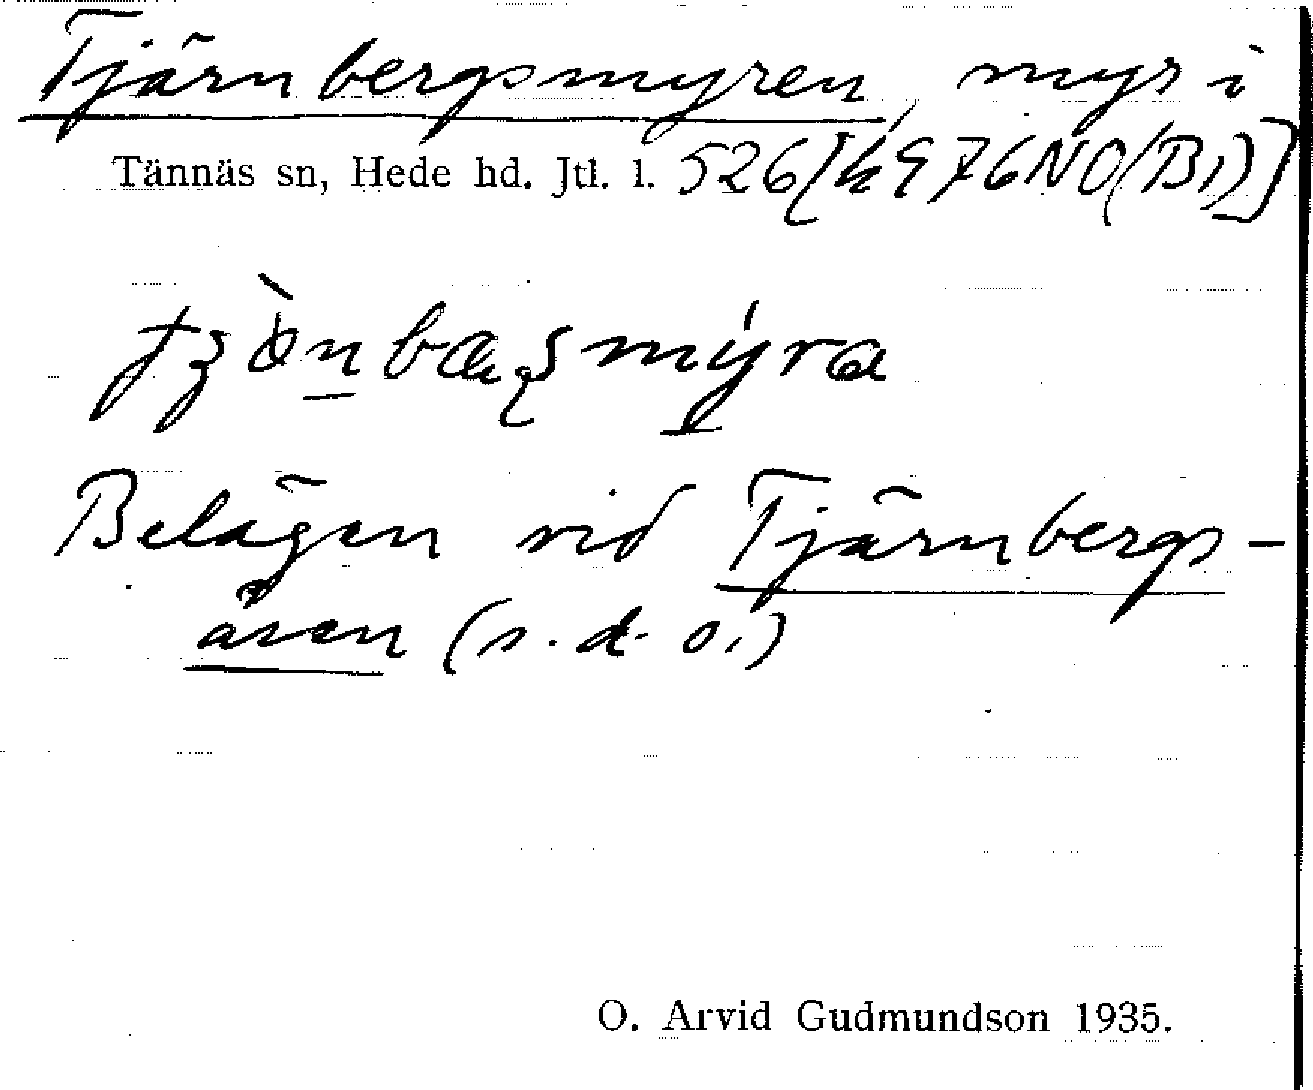 Tjärnbergsmyren, myr i
Tännäs sn, Hede hd. Jtl. l. 526[k976NO(B1)]
Belägen vid Tjärnbergs-
åsen (s. d. o.)
O. Arvid Gudmundson 1935.